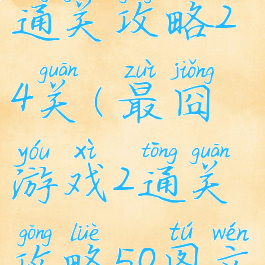 通关攻略2
guān zuì jiǒng
4关(最囧
yóu xì tōng guān
游戏2通关
gōng lüè tú wén
攻略50图文